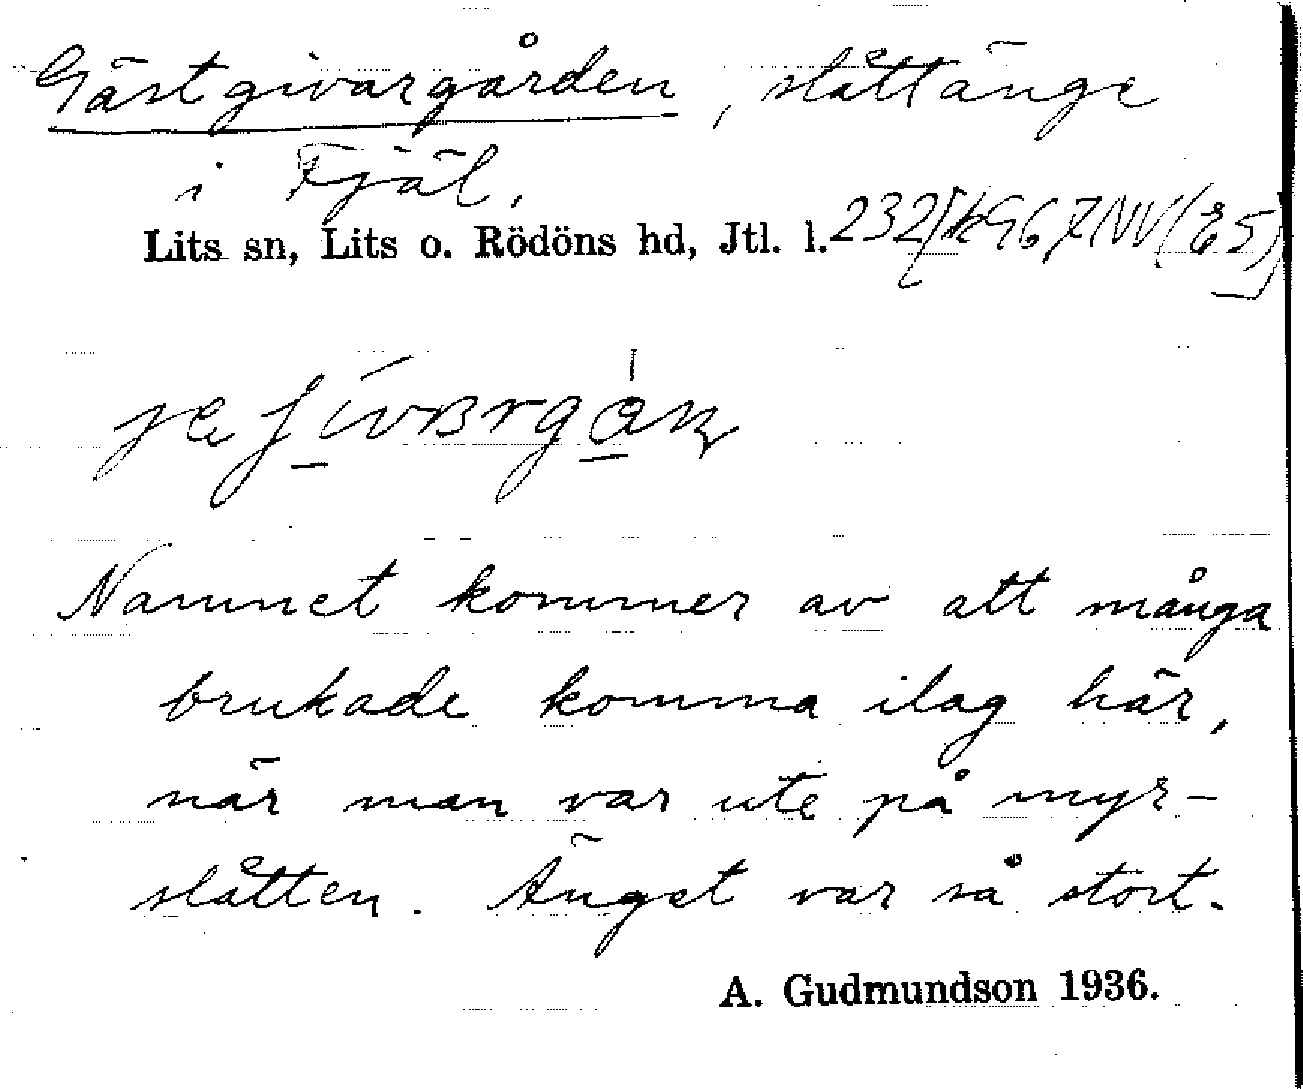 Gästgivargården, slåttänge
i Fjäl.
Lits sn, Lits o. Rödöns hd, Jtl. l.
Namnet kommer av att många
brukade komma ilag här,
när man var ute på myr-
slåtten. Änget var så stort.
A. Gudmundson 1936.